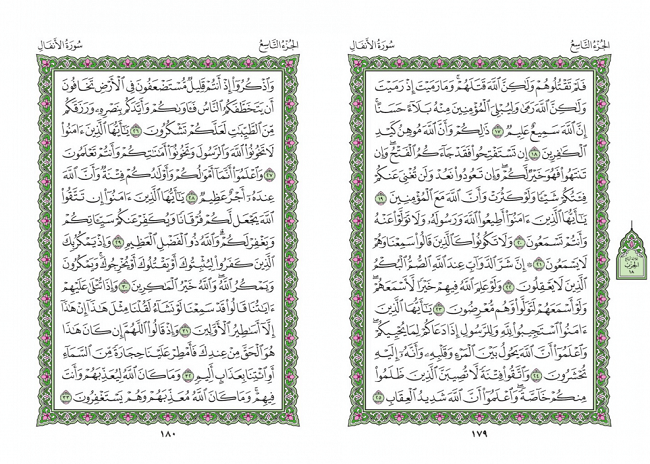 الجُزْءُ التَّاسِعُ
سُورَةُ الأَنفَالِ
فَلَمْ تَقْتُلُوهُمْ وَلَٰكِنَّ ٱللَّهَ قَتَلَهُمْ ۚ وَمَا رَمَيْتَ إِذْ رَمَيْتَ
وَلَٰكِنَّ ٱللَّهَ رَمَىٰ وَلِيُبْلِيَ ٱلْمُؤْمِنِينَ مِنْهُ بَلَآءً حَسَنًا ۚ
إِنَّ ٱللَّهَ سَمِيعٌ عَلِيمٌ ١٧ ذَٰلِكُمْ وَأَنَّ ٱللَّهَ مُوهِنُ كَيْدِ
ٱلْكَٰفِرِينَ ١٨ إِن تَسْتَفْتِحُوا۟ فَقَدْ جَآءَكُمُ ٱلْفَتْحُ ۖ وَإِن
تَنتَهُوا۟ فَهُوَ خَيْرٌ لَّكُمْ ۖ وَإِن تَعُودُوا۟ نَعُدْ وَلَن تُغْنِيَ عَنكُمْ
فِئَتُكُمْ شَيْـًٔا وَلَوْ كَثُرَتْ وَأَنَّ ٱللَّهَ مَعَ ٱلْمُؤْمِنِينَ ١٩
يَٰٓأَيُّهَا ٱلَّذِينَ ءَامَنُوٓا۟ أَطِيعُوا۟ ٱللَّهَ وَرَسُولَهُۥ وَلَا تَوَلَّوْا۟ عَنْهُ
وَأَنتُمْ تَسْمَعُونَ ٢٠ وَلَا تَكُونُوا۟ كَٱلَّذِينَ قَالُوا۟ سَمِعْنَا وَهُمْ
لَا يَسْمَعُونَ ٢١ ۞ إِنَّ شَرَّ ٱلدَّوَآبِّ عِندَ ٱللَّهِ ٱلصُّمُّ ٱلْبُكْمُ
ٱلَّذِينَ لَا يَعْقِلُونَ ٢٢ وَلَوْ عَلِمَ ٱللَّهُ فِيهِمْ خَيْرًا لَّأَسْمَعَهُمْ ۖ
وَلَوْ أَسْمَعَهُمْ لَتَوَلَّوا۟ وَّهُم مُّعْرِضُونَ ٢٣ يَٰٓأَيُّهَا ٱلَّذِينَ
ءَامَنُوا۟ ٱسْتَجِيبُوا۟ لِلَّهِ وَلِلرَّسُولِ إِذَا دَعَاكُمْ لِمَا يُحْيِيكُمْ ۖ
وَٱعْلَمُوٓا۟ أَنَّ ٱللَّهَ يَحُولُ بَيْنَ ٱلْمَرْءِ وَقَلْبِهِۦ وَأَنَّهُۥٓ إِلَيْهِ
تُحْشَرُونَ ٢٤ وَٱتَّقُوا۟ فِتْنَةً لَّا تُصِيبَنَّ ٱلَّذِينَ ظَلَمُوا۟
مِنكُمْ خَآصَّةً ۖ وَٱعْلَمُوٓا۟ أَنَّ ٱللَّهَ شَدِيدُ ٱلْعِقَابِ ٢٥
١٧٩
الجُزْءُ التَّاسِعُ
سُورَةُ الأَنفَالِ
وَٱذْكُرُوٓا۟ إِذْ أَنتُمْ قَلِيلٌ مُّسْتَضْعَفُونَ فِى ٱلْأَرْضِ تَخَافُونَ
أَن يَتَخَطَّفَكُمُ ٱلنَّاسُ فَـَٔاوَىٰكُمْ وَأَيَّدَكُم بِنَصْرِهِۦ وَرَزَقَكُم
مِّنَ ٱلطَّيِّبَٰتِ لَعَلَّكُمْ تَشْكُرُونَ ٢٦ يَٰٓأَيُّهَا ٱلَّذِينَ ءَامَنُوا۟
لَا تَخُونُوا۟ ٱللَّهَ وَٱلرَّسُولَ وَتَخُونُوٓا۟ أَمَٰنَٰتِكُمْ وَأَنتُمْ تَعْلَمُونَ
٢٧ وَٱعْلَمُوٓا۟ أَنَّمَآ أَمْوَٰلُكُمْ وَأَوْلَٰدُكُمْ فِتْنَةٌ وَأَنَّ ٱللَّهَ
عِندَهُۥٓ أَجْرٌ عَظِيمٌ ٢٨ يَٰٓأَيُّهَا ٱلَّذِينَ ءَامَنُوٓا۟ إِن تَتَّقُوا۟
ٱللَّهَ يَجْعَل لَّكُمْ فُرْقَانًا وَيُكَفِّرْ عَنكُمْ سَيِّـَٔاتِكُمْ
وَيَغْفِرْ لَكُمْ ۗ وَٱللَّهُ ذُو ٱلْفَضْلِ ٱلْعَظِيمِ ٢٩ وَإِذْ يَمْكُرُ بِكَ
ٱلَّذِينَ كَفَرُوا۟ لِيُثْبِتُوكَ أَوْ يَقْتُلُوكَ أَوْ يُخْرِجُوكَ ۚ وَيَمْكُرُونَ
وَيَمْكُرُ ٱللَّهُ ۖ وَٱللَّهُ خَيْرُ ٱلْمَٰكِرِينَ ٣٠ وَإِذَا تُتْلَىٰ عَلَيْهِمْ
ءَايَٰتُنَا قَالُوا۟ قَدْ سَمِعْنَا لَوْ نَشَآءُ لَقُلْنَا مِثْلَ هَٰذَآ ۙ إِنْ هَٰذَآ
إِلَّآ أَسَٰطِيرُ ٱلْأَوَّلِينَ ٣١ وَإِذْ قَالُوا۟ ٱللَّهُمَّ إِن كَانَ هَٰذَا
هُوَ ٱلْحَقَّ مِنْ عِندِكَ فَأَمْطِرْ عَلَيْنَا حِجَارَةً مِّنَ ٱلسَّمَآءِ
أَوِ ٱئْتِنَا بِعَذَابٍ أَلِيمٍ ٣٢ وَمَا كَانَ ٱللَّهُ لِيُعَذِّبَهُمْ وَأَنتَ
فِيهِمْ ۚ وَمَا كَانَ ٱللَّهُ مُعَذِّبَهُمْ وَهُمْ يَسْتَغْفِرُونَ ٣٣
١٨٠